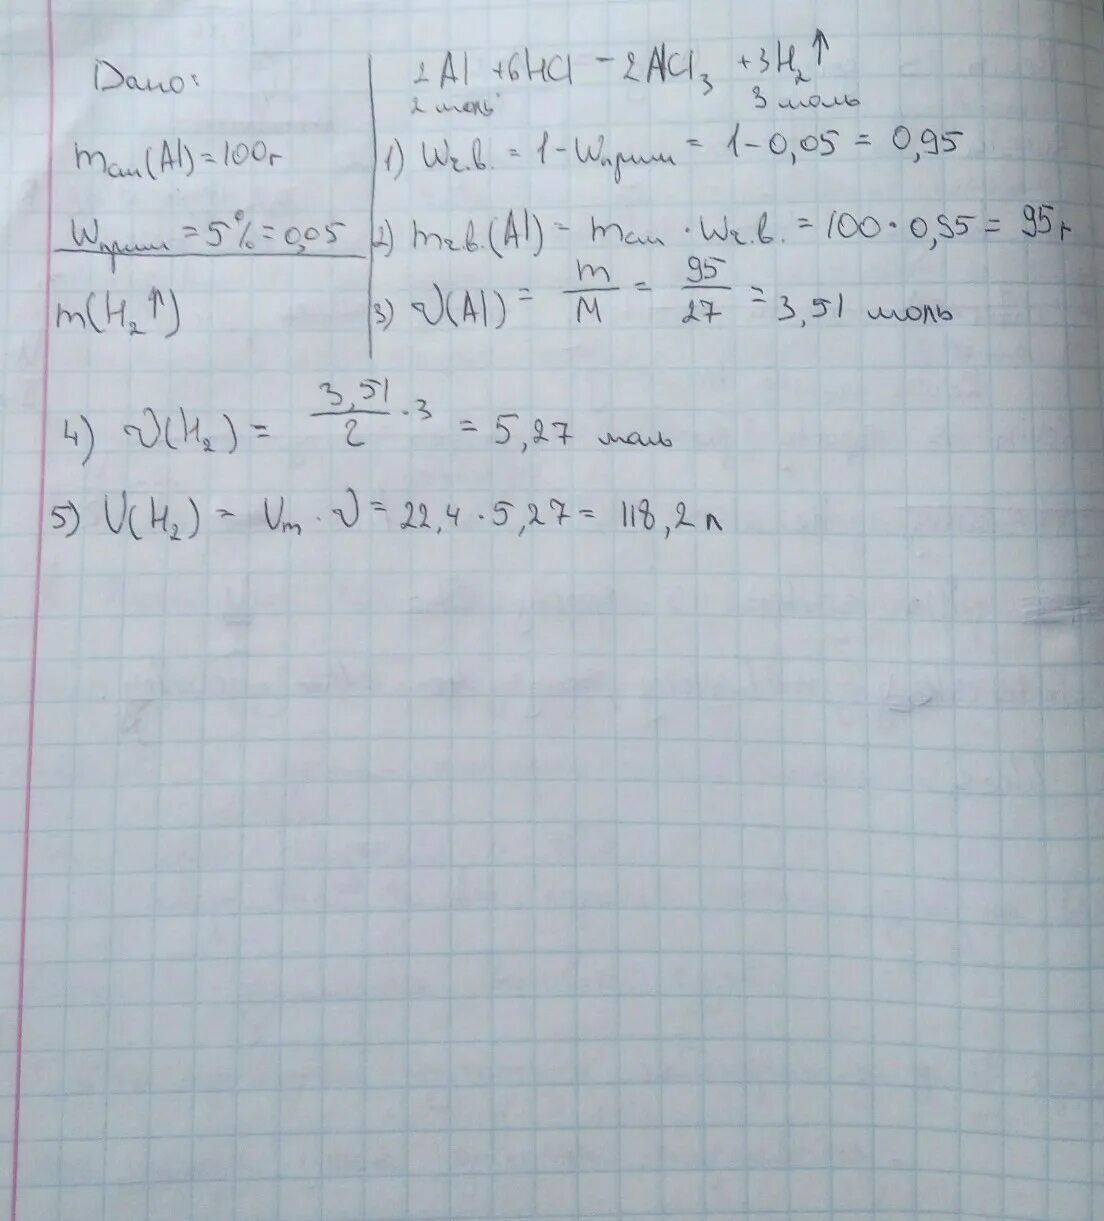 Дано:
m_сп(Al) = 100г
W_прим = 5% = 0,05
m(H₂↑)
2Al + 6HCl - 2AlCl₃ + 3H₂↑
2 моль 3 моль
1) Wч.в. = 1 - Wприм = 1 - 0,05 = 0,95
2) mч.в.(Al) = mсп · Wч.в. = 100 · 0,95 = 95г
3) ν(Al) = m/M = 95/27 = 3,51 моль
4) ν(H₂) = 3,51/2 · 3 = 5,27 моль
5) V(H₂) = Vm · ν = 22,4 · 5,27 = 118,2 л